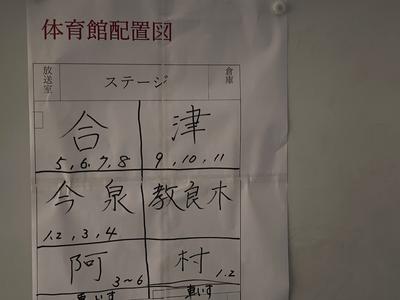 体育館配置図
放送室 ステージ 倉庫
合 津
5,6,7,8 9,10,11
今泉 教良木
1.2,3,4
阿 村
3~6 1.2
車いす 車いす